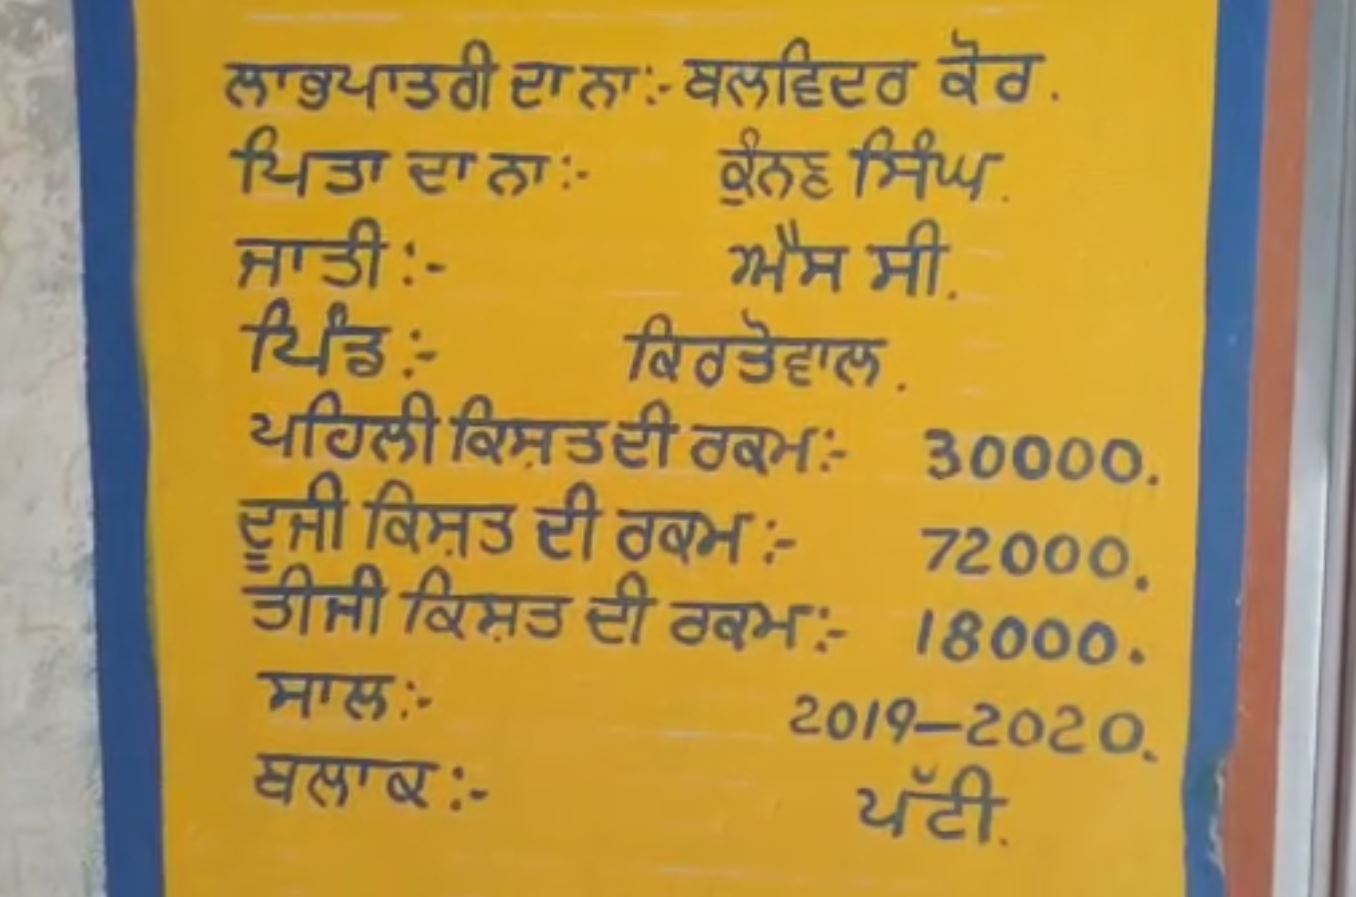 ਲਾਭਪਾਤਰੀ ਦਾ ਨਾ:- ਬਲਵਿਦਰ ਕੋਰ.
ਪਿਤਾ ਦਾ ਨਾ:- ਕੁੰਨਣ ਸਿੰਘ.
ਜਾਤੀ:- ਐਸ ਸੀ.
ਪਿੰਡ:- ਕਿਰਤੋਵਾਲ.
ਪਹਿਲੀ ਕਿਸ਼ਤ ਦੀ ਰਕਮ:- 30000.
ਦੂਜੀ ਕਿਸ਼ਤ ਦੀ ਰਕਮ:- 72000.
ਤੀਜੀ ਕਿਸ਼ਤ ਦੀ ਰਕਮ:- 18000.
ਸਾਲ:- 2019-2020.
ਬਲਾਕ:- ਪੱਟੀ.